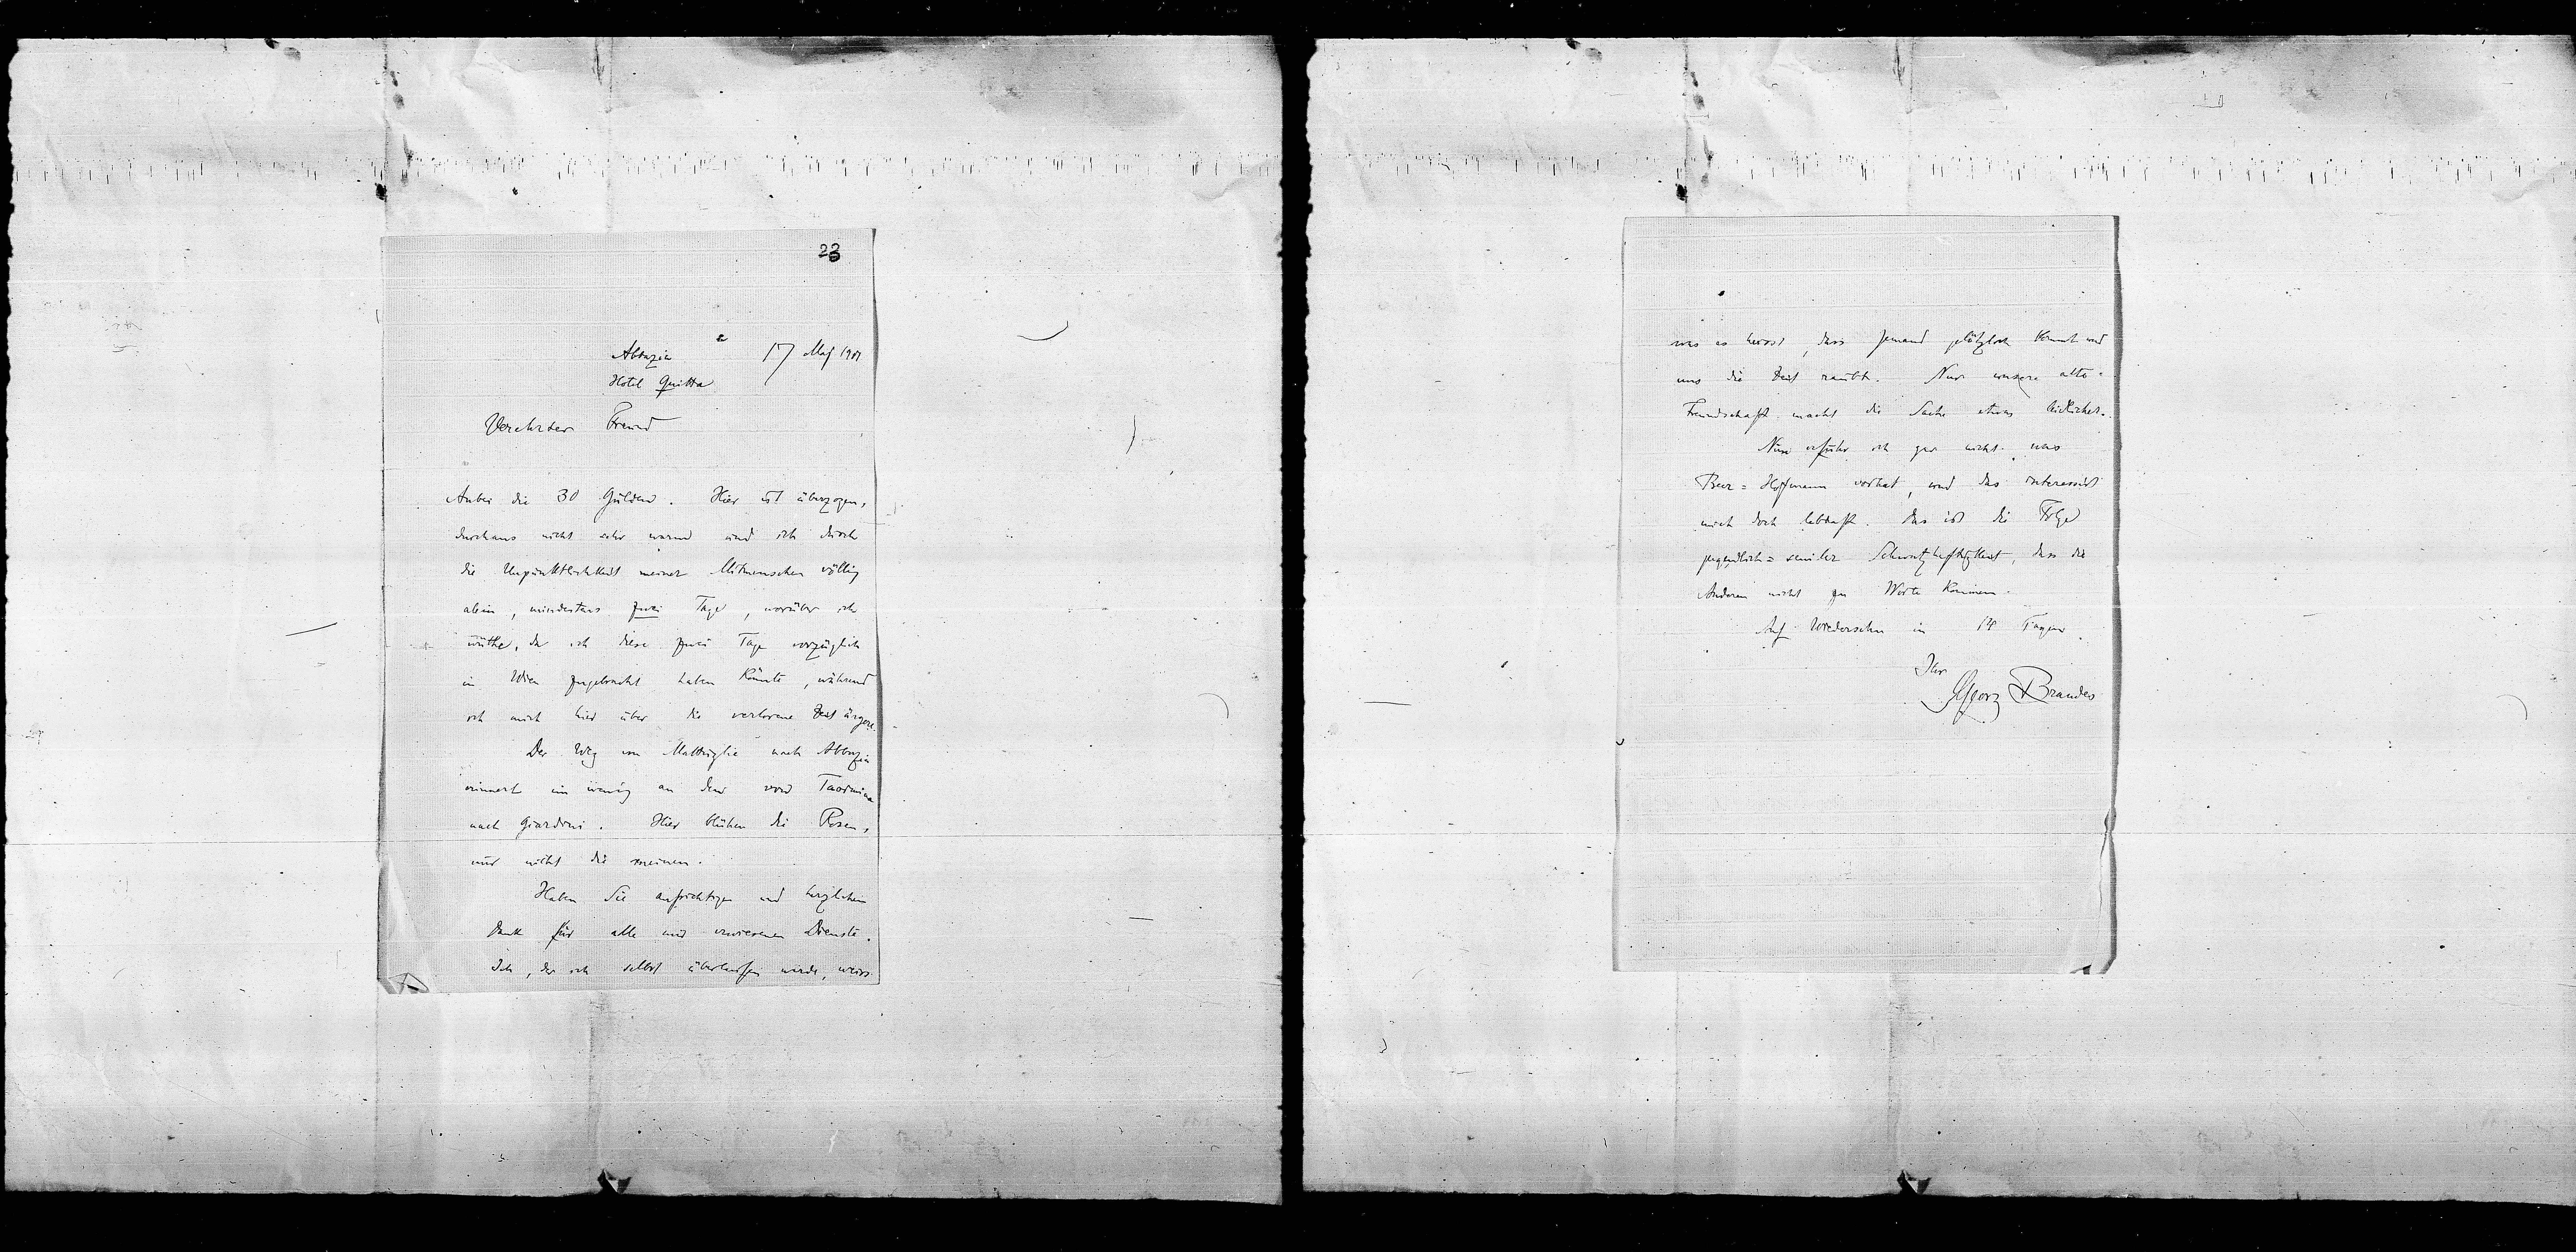 23
Abbazia 17 Maj 1901
Hotel Quitta
Verehrter Freund
Anbei die 30 Gulden. Hier ist überzogen,
durchaus nicht sehr warm und ich durch
die Unpünktlichkeit meiner Mitmenschen völlig
allein, mindestens zwei Tage, worüber ich
wüthe, da ich diese zwei Tage vorzüglich
in Wien zugebracht haben könnte, während
ich mich hier über die verlorene Zeit ärgere.
Der Weg von Mattuglie nach Abbazia
erinnert ein wenig an den von Taormina
nach Giardini. Hier blühen die Rosen,
nur nicht die meinen.
Haben Sie aufrichtigen und herzlichen
Dank für alle mir erwiesenen Dienste.
Ich, der ich selbst überlaufen werde, weiss
was es heisst, dass Jemand plötzlich kommt und
uns die Zeit raubt. Nur unsere alte
Freundschaft macht die Sache etwas leidlicher.
Nun erfuhr ich gar nicht was
Beer=Hofmann vorhat, und das interessirt
mich doch lebhaft. Das ist die Folge
jugendlich=seniler Schwatzhaftigkeit, dass die
Anderen nicht zu Worte kommen.
Auf Wiedersehn in 14 Tagen.
Ihr
Georg Brandes